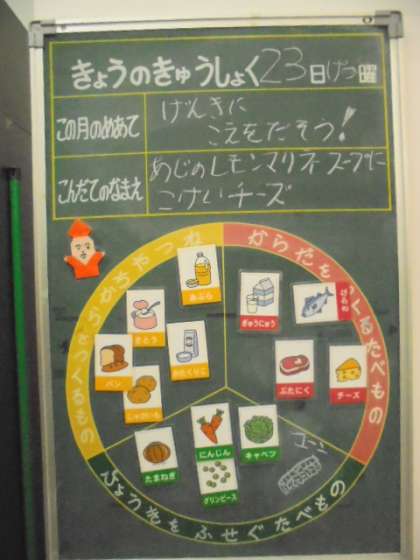 きょうのきゅうしょく 23日げつ曜
この月のめあて
げんきに
こえをだそう!
こんだてのなまえ
あじのレモンマリネ スープに
こけいチーズ
ねつやちからになるもの
からだをつくるたべもの
あぶら
さとう
かたくりこ
パン
じゃがいも
ぎゅうにゅう
ぶたにく
チーズ
にんじん
キャベツ
たまねぎ
グリンピース
コーン
びょうきをふせぐたべもの